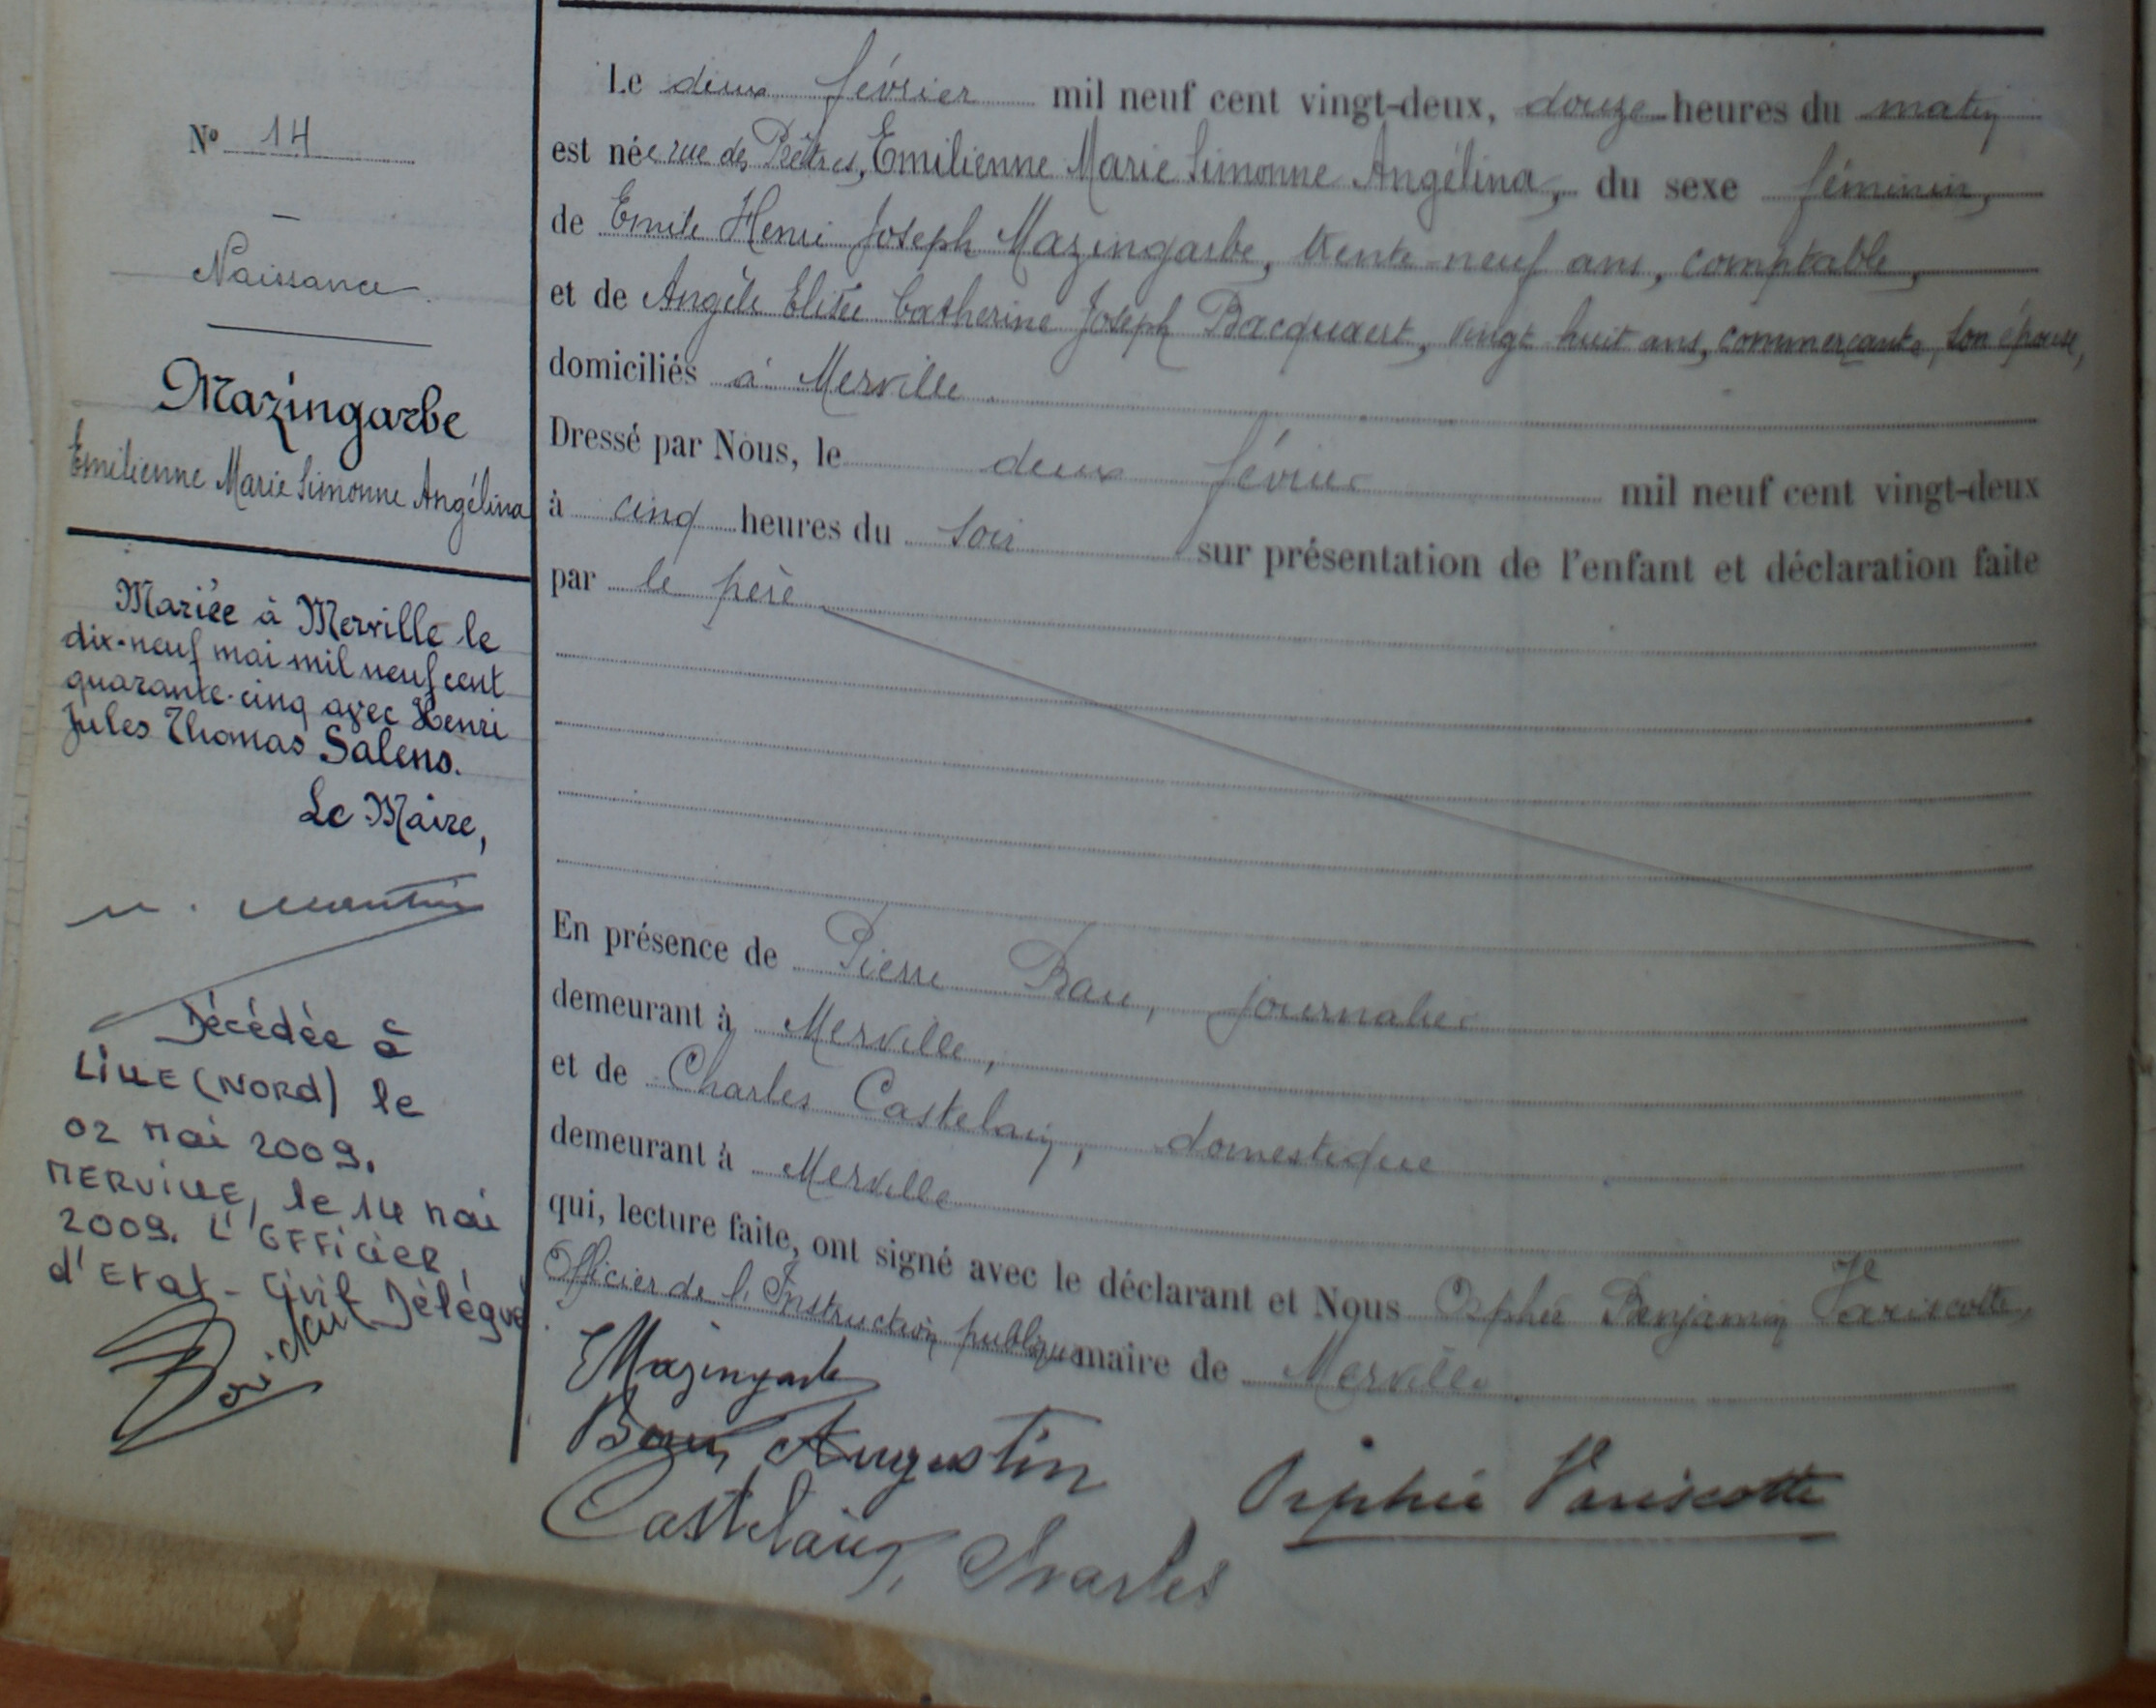 N° 14
Naissance
Mazingarbe
Emilienne Marie Simonne Angélina
Mariée à Merville le
dix-neuf mai mil neuf cent
quarante-cinq avec Henri
Jules Thomas Salens.
Le Maire,
Décédée à
LILLE (NORD) le
02 Mai 2009.
MERVILLE, le 14 Mai
2009. L'OFFICIER
d'Etat-Civil Délégué
Le deux février mil neuf cent vingt-deux, douze heures du matin
est née rue des Prêtres, Emilienne Marie Simonne Angélina, du sexe féminin,
de Emile Henri Joseph Mazingarbe, trente-neuf ans, comptable,
et de Angèle Elisée Catherine Joseph Bacquaert, vingt huit ans, commerçante, son épouse,
domiciliés à Merville
Dressé par Nous, le deux février mil neuf cent vingt-deux
à cinq heures du soir sur présentation de l'enfant et déclaration faite
par le père
En présence de Pierre journalier
demeurant à Merville,
et de Charles Castelain, domestique
demeurant à Merville
qui, lecture faite, ont signé avec le déclarant et Nous Orphée Benjamin Variscotte,
Officier de l'Instruction publique maire de Merville
EMazingarbe
Augustin
Castelain, Charles
Orphée Variscotte